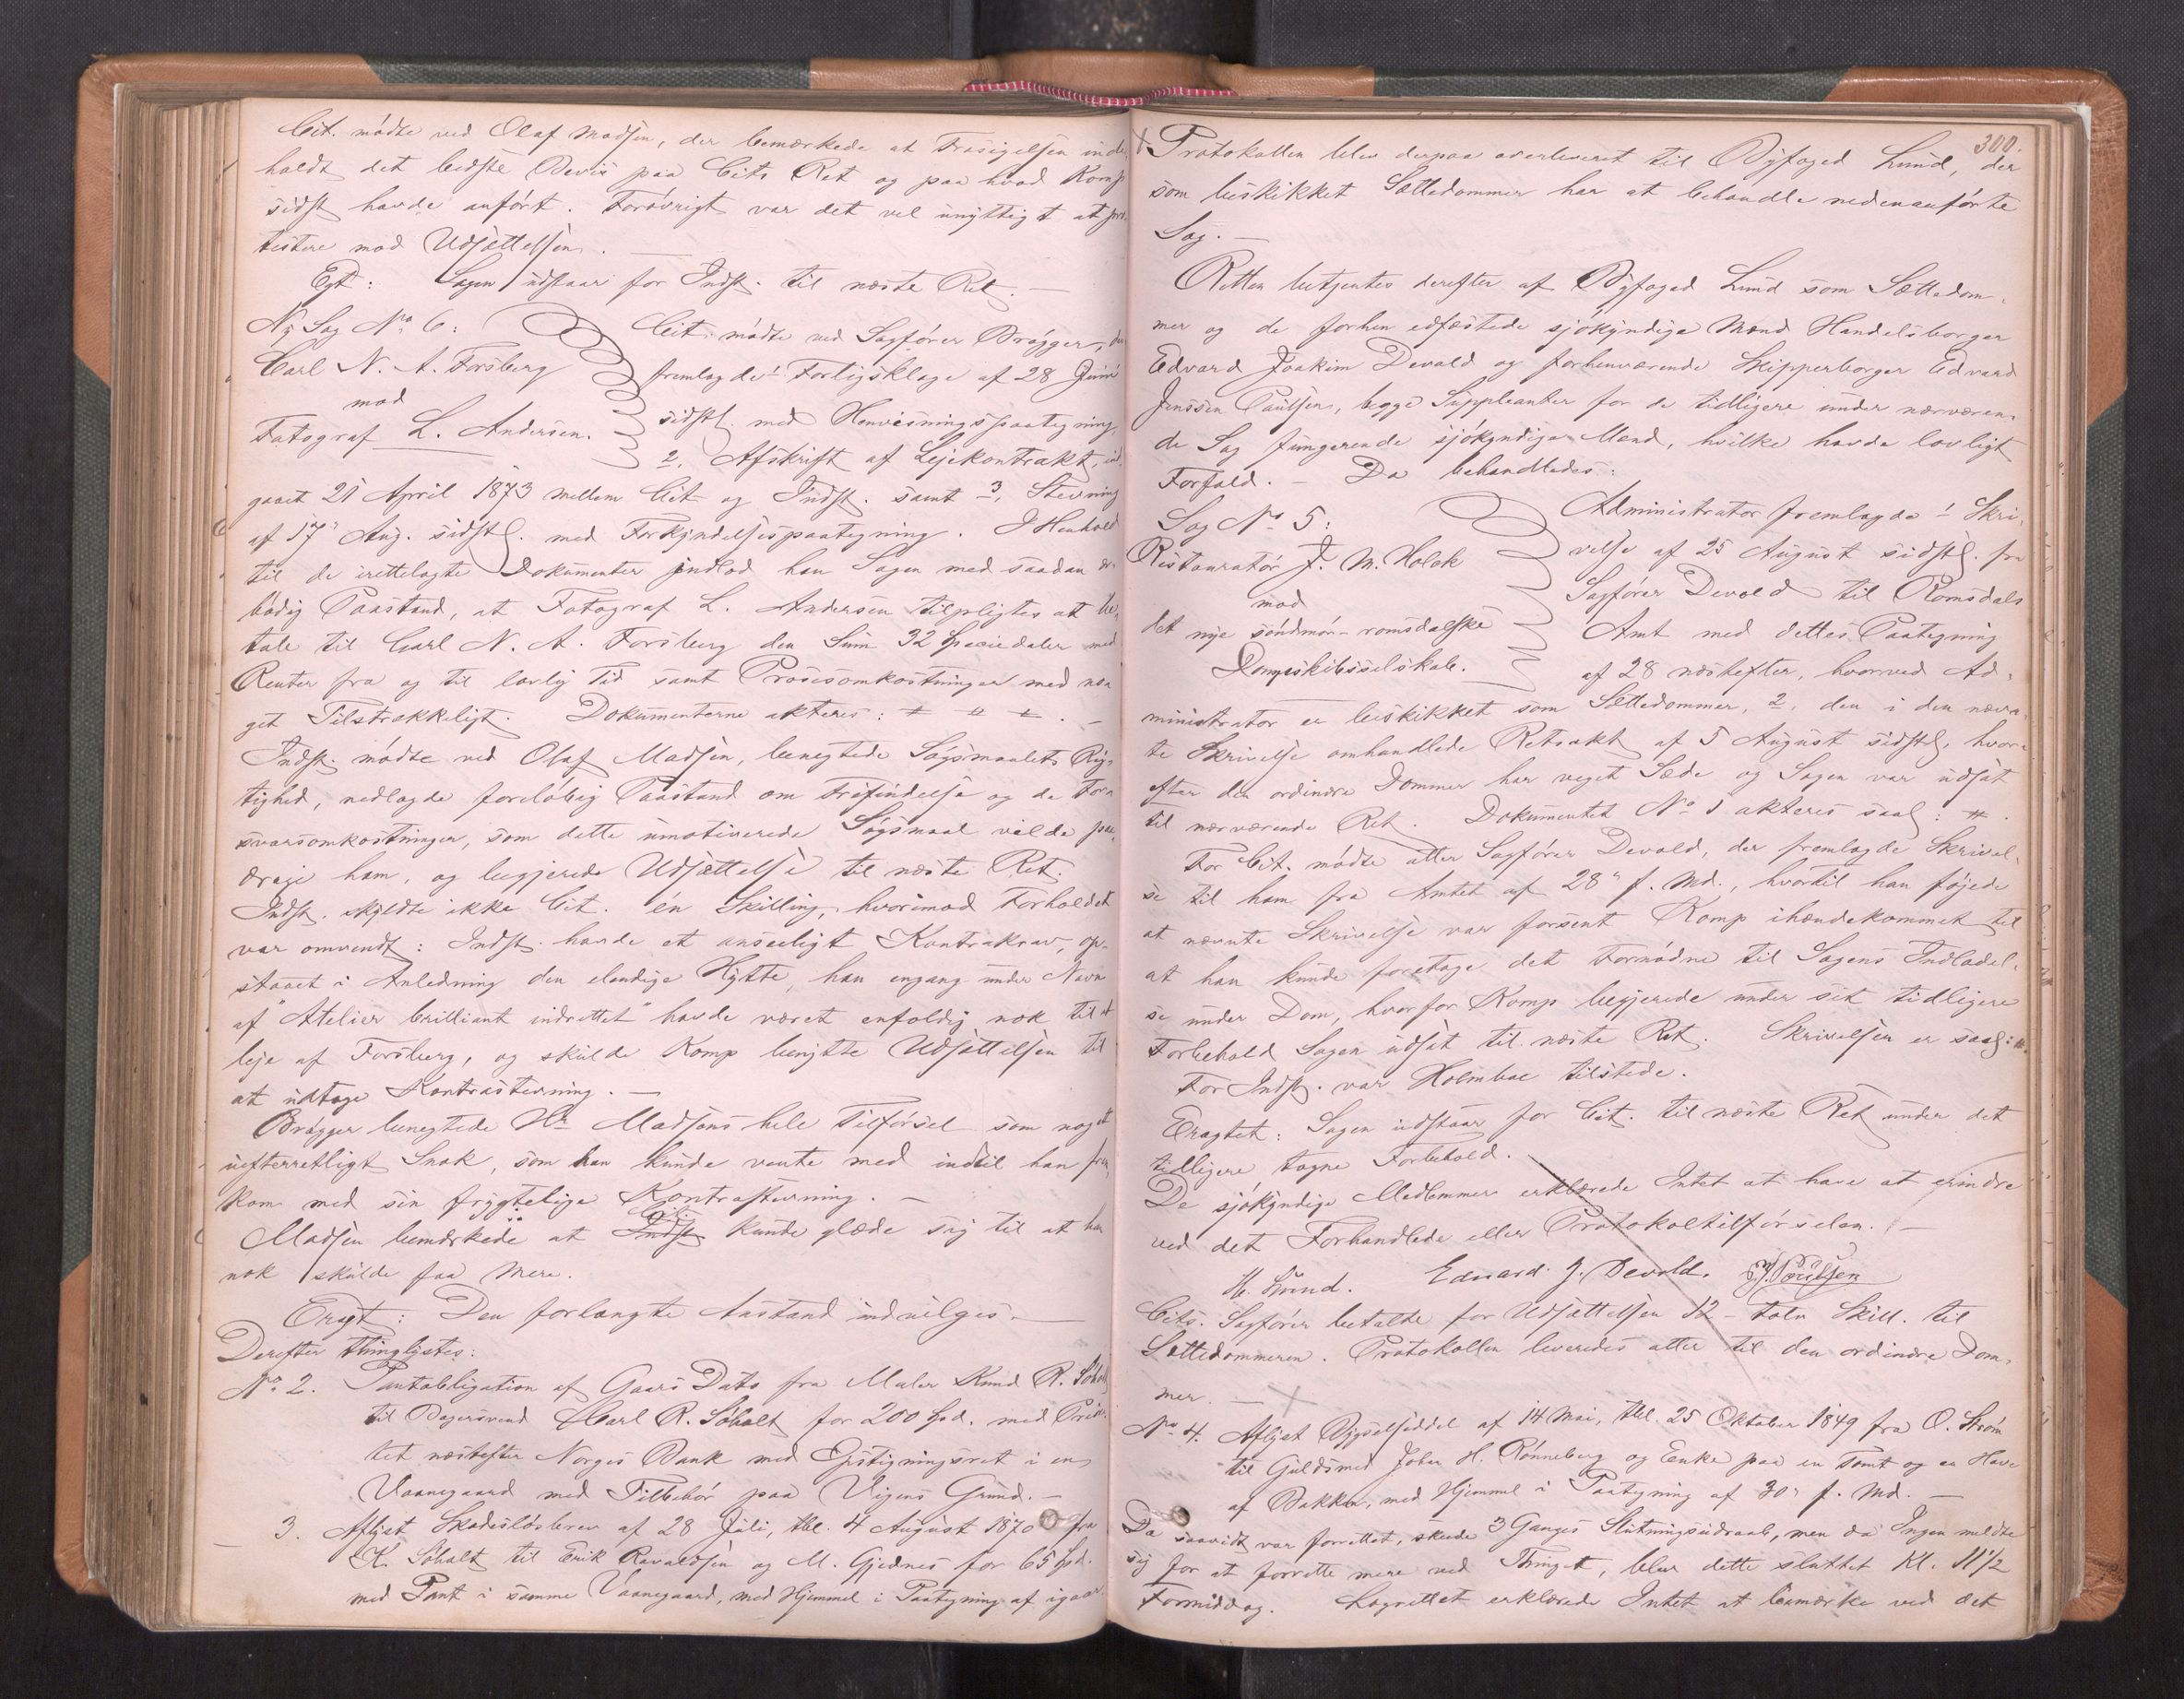 Cit. mødte ved Olaf Madsen, der bemærkede at Frasigelsen inde
holdt det bedste Bevis paa Cits Ret og paa hvad Komp
sidst havde anført. Forøvrigt var det vel unyttigt at pro
testere mod Udsættelsen. —
Egt: Sagen udstaar for Indst. til næste Ret. —
Ny Sag No. 6:
Carl N. A. Forsberg
mod
Fotograf L. Andersen.
Cit. mødte ved Sagfører Brøgger, der
fremlagde 1 Forligsklage af 28 Juni
sidstl. med Henvisningspaategning,
2, Afskrift af Lejekontrakt, ind
gaaet 21 April 1873 mellem Cit og Indst. samt 3, Stevning
af 17" Aug. sidstl. med Forkyndelsespaategning. I Henhold
til de irettelagte Dokumenter indlod han Sagen med saadan ær
bødig Paastand, at Fotograf L. Andersen tilpligtes at be
tale til Carl N. A. Forsberg den Sum 32 Speciedaler med
Renter fra og til lovlig Tid samt Prosesomkostninger med no
get Tilstrækkeligt. Dokumenterne akteres: # # #. —
Indst. mødte ved Olaf Madsen, benegtede Søgsmaalets Rig-
tighed, nedlagde foreløbig Paastand om Frifindelse og de For
svarsomkostninger, som dette umotiverede Søgsmaal vilde paa
drage ham, og begjerede Udsættelse til næste Ret.
Indst. skyldte ikke Cit. én Skilling, hvorimod Forholdet
var omvendt: Indst. havde et anseeligt Kontrakrav, op-
staaet i Anledning den elendige Hytte, han engang under Navn
af "Atelier brilliant indrettet" havde været enfoldig nok til at
leje af Forsberg, og skulde Komp benytte Udsættelsen til
at udtage Kontrastevning. —
Brøgger benegtede Hr Madsens hele Tilførsel som noget
uefterretligt Snak, som han kunde vente med indtil han frem
kom med sin frygtelige Kontrastevning. —
Madsen bemærkede at Cit. kunde glæde sig til at han
nok skulde faa mere.
Eragt: Den forlangte Anstand indvilges. —
Derefter thinglystes:
No. 2. Pantobligation af Gaars Dato fra Maler Knud R. Søholt
til Bagersvend Carl R. Søholt for 200 Spd. med Priori
tet næstefter Norges Bank med Opstigningsret i en
Vaanegaard med Tilbehør paa Vigens Grund. —
3. Aflyst Skadesløsbrev af 28 Juli, thl. 4 August 1870 fra
K. Søholt til Erik Ravaldsen og M. Gjednes for 65 Spd.
med Pant i samme Vaanegaard, med Hjemmel i Paategning af igaar.
300.
Protokollen blev derpaa overleveret til Byfoged Lund, der
som beskikket Sættedommer har at behandle nedenanførte
Sag. —
Retten betjentes derefter af Byfoged Lund som Sættedom-
mer og de forhen edfæstede sjøkyndige Mænd Handelsborger
Edvard Joakim Devold og forhenværende Skipperborger Edvard
Jenssen Paulsen, begge Suppleanter for de tidligere under nærværen-
de Sag fungerende sjøkyndige Mænd, hvilke havde lovligt
Forfald. — Da behandledes:
Sag No 5:
Restauratør J. M. Holck
mod
det nye søndmør-romsdalske
Dampskibsselskab.
Administrator fremlagde 1 Skri-
velse af 25 August sidstl. fra
Sagfører Devold til Romsdals
Amt med dettes Paategning
af 28 næstefter, hvorved Ad-
ministrator er beskikket som Sættedommer, 2, den i den nævn
te Skrivelse omhandlede Retsakt af 5 August sidstl., hvor-
efter den ordinære Dommer har veget Sæde og Sagen var udsat
til nærværende Ret. Dokumentet No 1 akteres saal: #.
For Cit. mødte atter Sagfører Devold, der fremlagde Skrivel-
se til ham fra Amtet af 28" f. Md., hvortil han føjede
at nævnte Skrivelse var forsent Komp ihændekommet til
at han kunde foretage det Fornødne til Sagens Indladel-
se under Dom, hvorfor Komp begjerede under sit tidligere
Forbehold Sagen udsat til næste Ret. Skrivelsen er saal: #.
For Indst. var Holmboe tilstede.
Eragtet: Sagen udstaar for Cit. til næste Ret under det
tidligere tagne Forbehold.
De sjøkyndige Medlemmer erklærede Intet at have at erindre
ved det Forhandlede eller Protokoltilførselen. —
H. Lund. Edvard J. Devold. E J Paulsen
Cits. Sagfører betalte for Udsættelsen 12 - tolv Skill. til
Sættedommeren. Protokollen leveredes atter til den ordinære Dom-
mer. —
No. 4. Aflyst Bygselseddel af 14 Mai, thl. 25 Oktober 1849 fra O. Strøm
til Guldsmed Johan H. Rønneberg og Enke paa en Tomt og en Have
af Bakken, med Hjemmel i Paategning af 30" f. Md. —
Da saavidt var forrettet, skede 3 Ganges Slutningsudraab, men da Ingen meldte
sig for at forrette mere ved Thinget, blev dette sluttet Kl. 11½
Formiddag. Lagrettet erklærede Intet at bemærke ved det